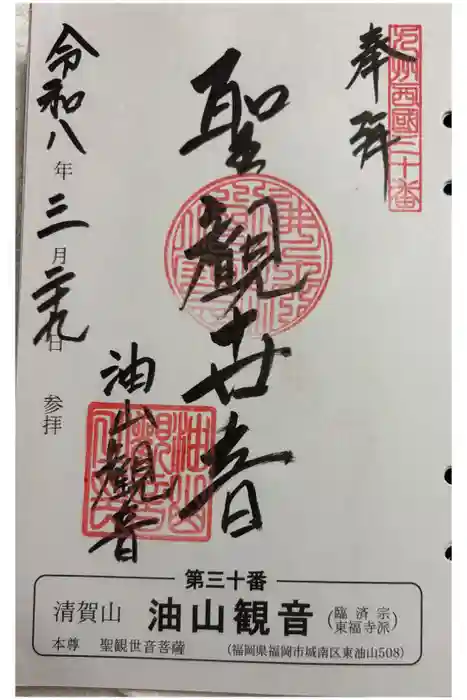 九州西國三十番
奉拜
聖觀世音
油山観音
令和八年三月二十九日参拝
第三十番
清賀山 油山観音 (臨済宗 東福寺派)
本尊 聖観世音菩薩 (福岡県福岡市城南区東油山508)